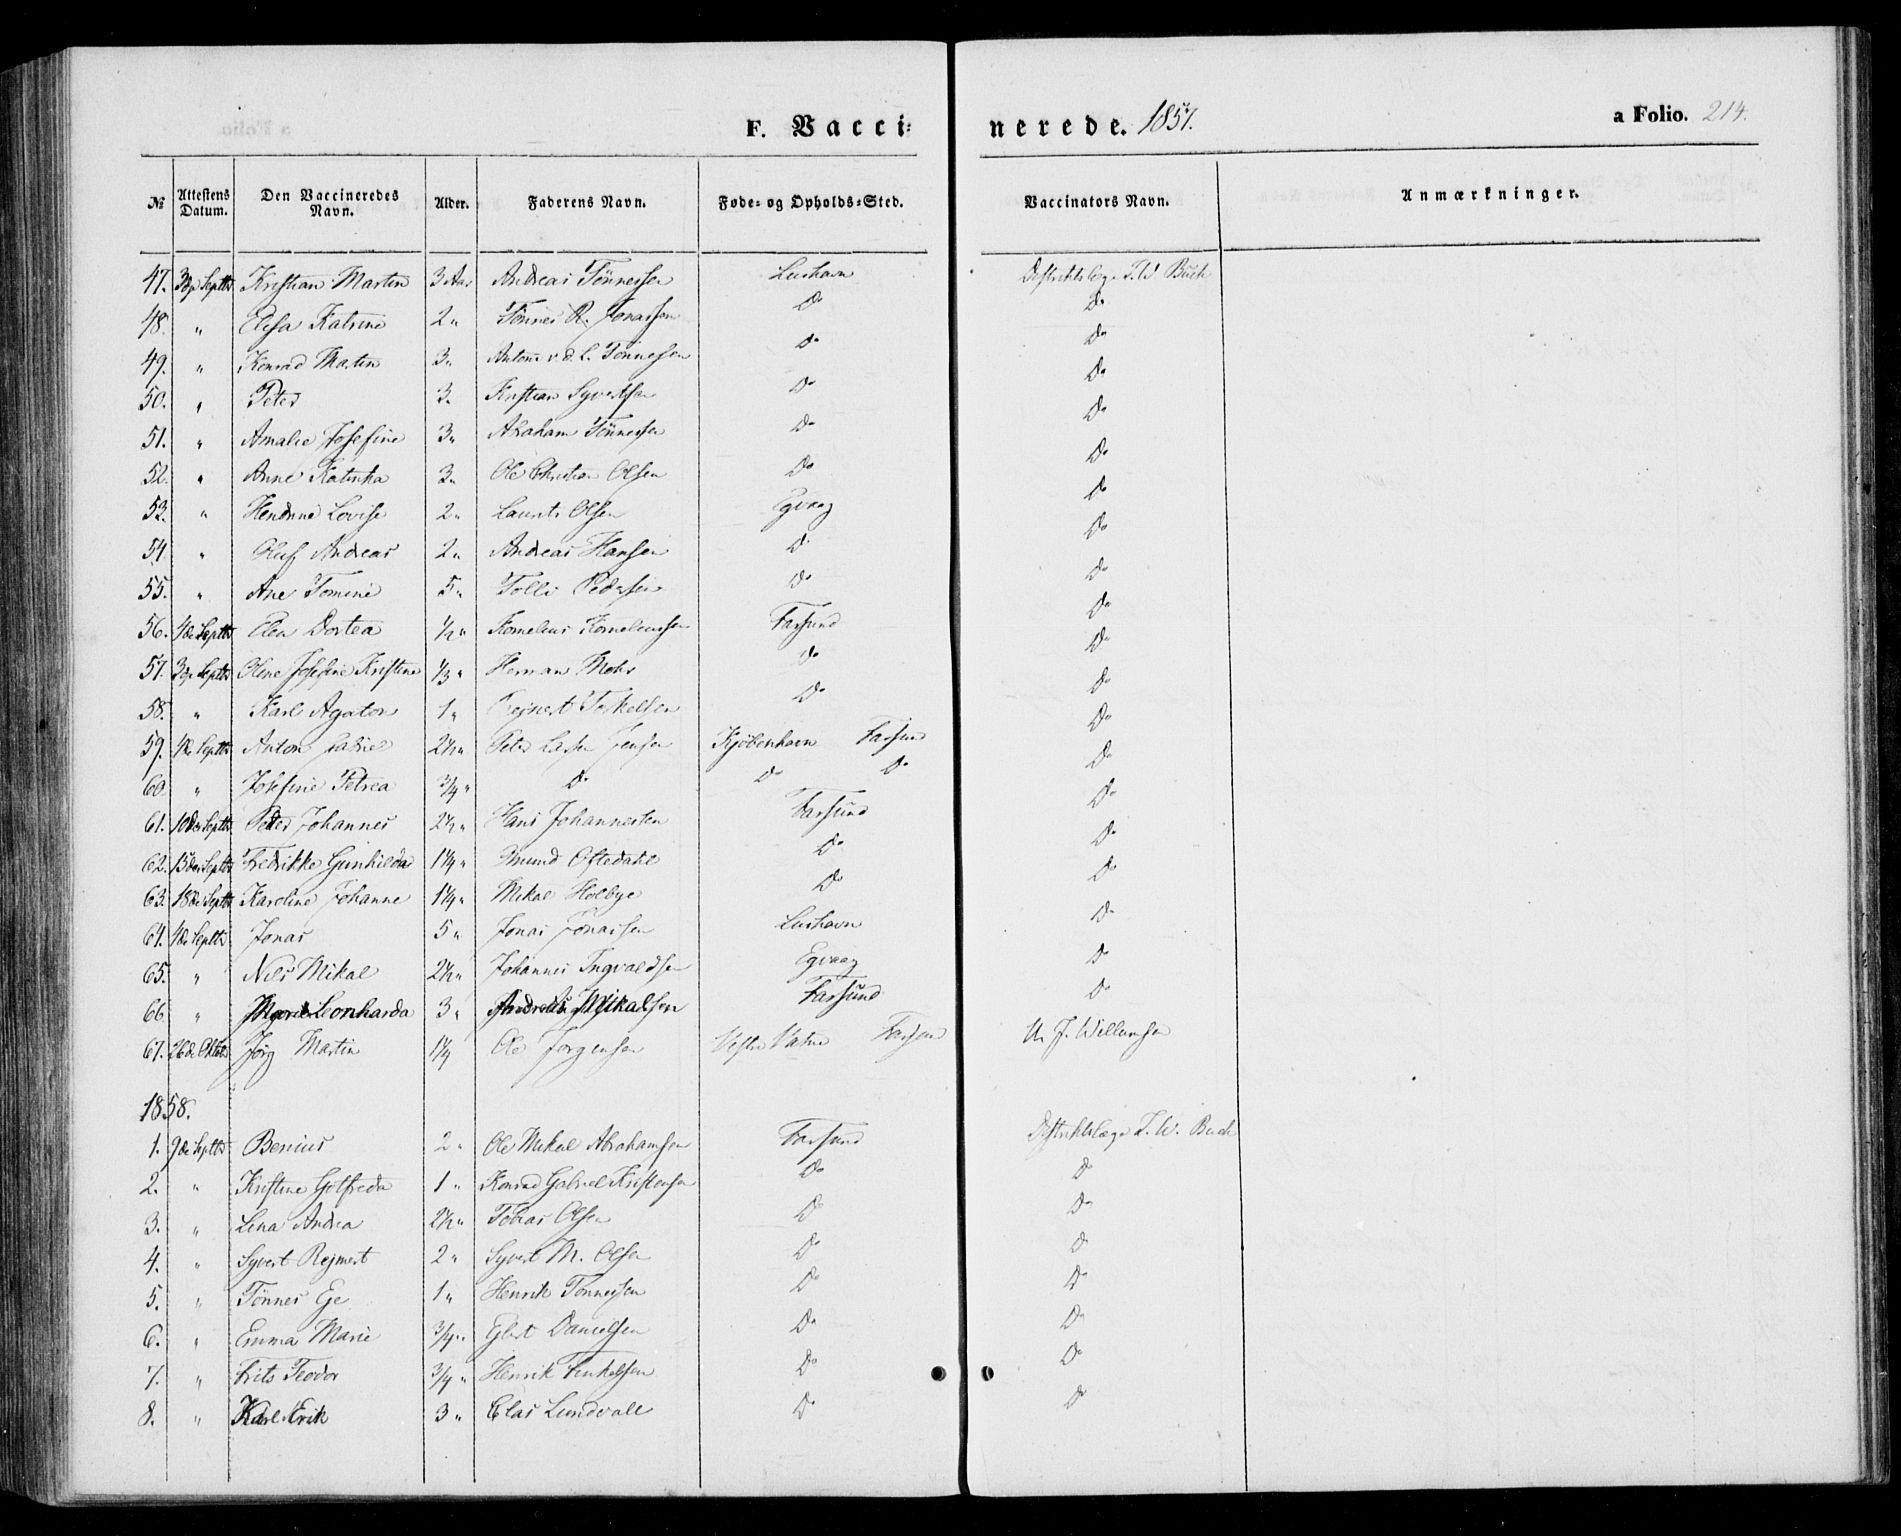 F. Vacci= nerede. 1857. a Folio. 214.
№ Attestens Datum. Den Vaccineredes Navn. Alder. Faderens Navn. Føde- og Opholds-Sted. Vaccinators Navn. Anmærkninger.
47. 3de Septbr Kristian Martin 3 Aar Andreas Tönnessen Lushavn Distriktslæge T. W. Buch
48. " Elisa Katrine 2 " Tönnes R. Jonassen Do Do
49. " Konrad Martin 3 " Tönnessen Do Do
50. " Peter 3 " Kristian Syvertsen Do Do
51. " Amalie Josefine 3 " Abraham Tönnessen Do Do
52. " Anne Katinka 3 " Ole Christian Olsen Do Do
53. " Hendrine Lovise 2 " Laurits Olsen Egvaag Do
54. " Oluf Andreas 2 " Andreas Hansen Do Do
55. " Ane Tomine 5 " Tolli Pedersen Do Do
56. 4de Septbr Elen Dortea 1/2 " Kornelius Korneliussen Farsund Do
57. 3de Septbr Oline Josefine Kristine 1/3 " Herman Mohs Do Do
58. " Karl Agaton 1 " Rejnert Torkelsen Do Do
59. 4de Septbr Anton Gabriel 2 1/2 " Peter Jensen Kjöbenhavn Farsund Do
60. " Josefine Petrea 3/4 " Do Do Do Do
61. 10de Septbr Peder Johannes 2 1/2 " Hans Johannesen Farsund Do
62. 15de Septbr Fredrikke Gunhilda 1 1/4 " Omund Oftedahl Do Do
63. 18de Septbr Karoline Johanne 1 1/4 " Mikal Holbye Do Do
64. 4de Septbr Jonas 5 " Jonas Jonassen Lushavn Do
65. " Nils Mikal 2 1/2 " Johannes Ingvaldsen Egvaag Do
66. " Marie Leonharda 3 " Andreas Mikalsen Farsund Do
67. 26de Oktbr Jörg Martin 1 1/4 Ole Jörgensen Vestre Vatne Farsund J. Willumsen
1858.
1. 9de Septbr Benius 2 " Ole Mikal Abrahamsen Farsund Distriktslæge T. W. Buch
2. " Kristine Gotfreda 1 " Konrad Gabriel Kristensen Do Do
3. " Lina Andrea 2 1/2 " Tobias Olsen Do Do
4. " Syvert Rejnert 2 " Syvert M. Olsen Do Do
5. " Tönnes Eje 1 " Henrik Tönnessen Do Do
6. " Emma Marie 3/4 " Eilert Danielsen Do Do
7. " Frits Teodor 3/4 " Henrik Do Do
8. " Karl Erik 3 " Clas Lundvall Do Do